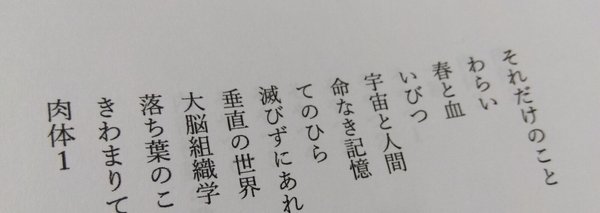 それだけのこと
わらい
春と血
いびつ
宇宙と人間
命なき記憶
てのひら
滅びずにあれ
垂直の世界
大脳組織学
落ち葉のこ
きわまりて
肉体1